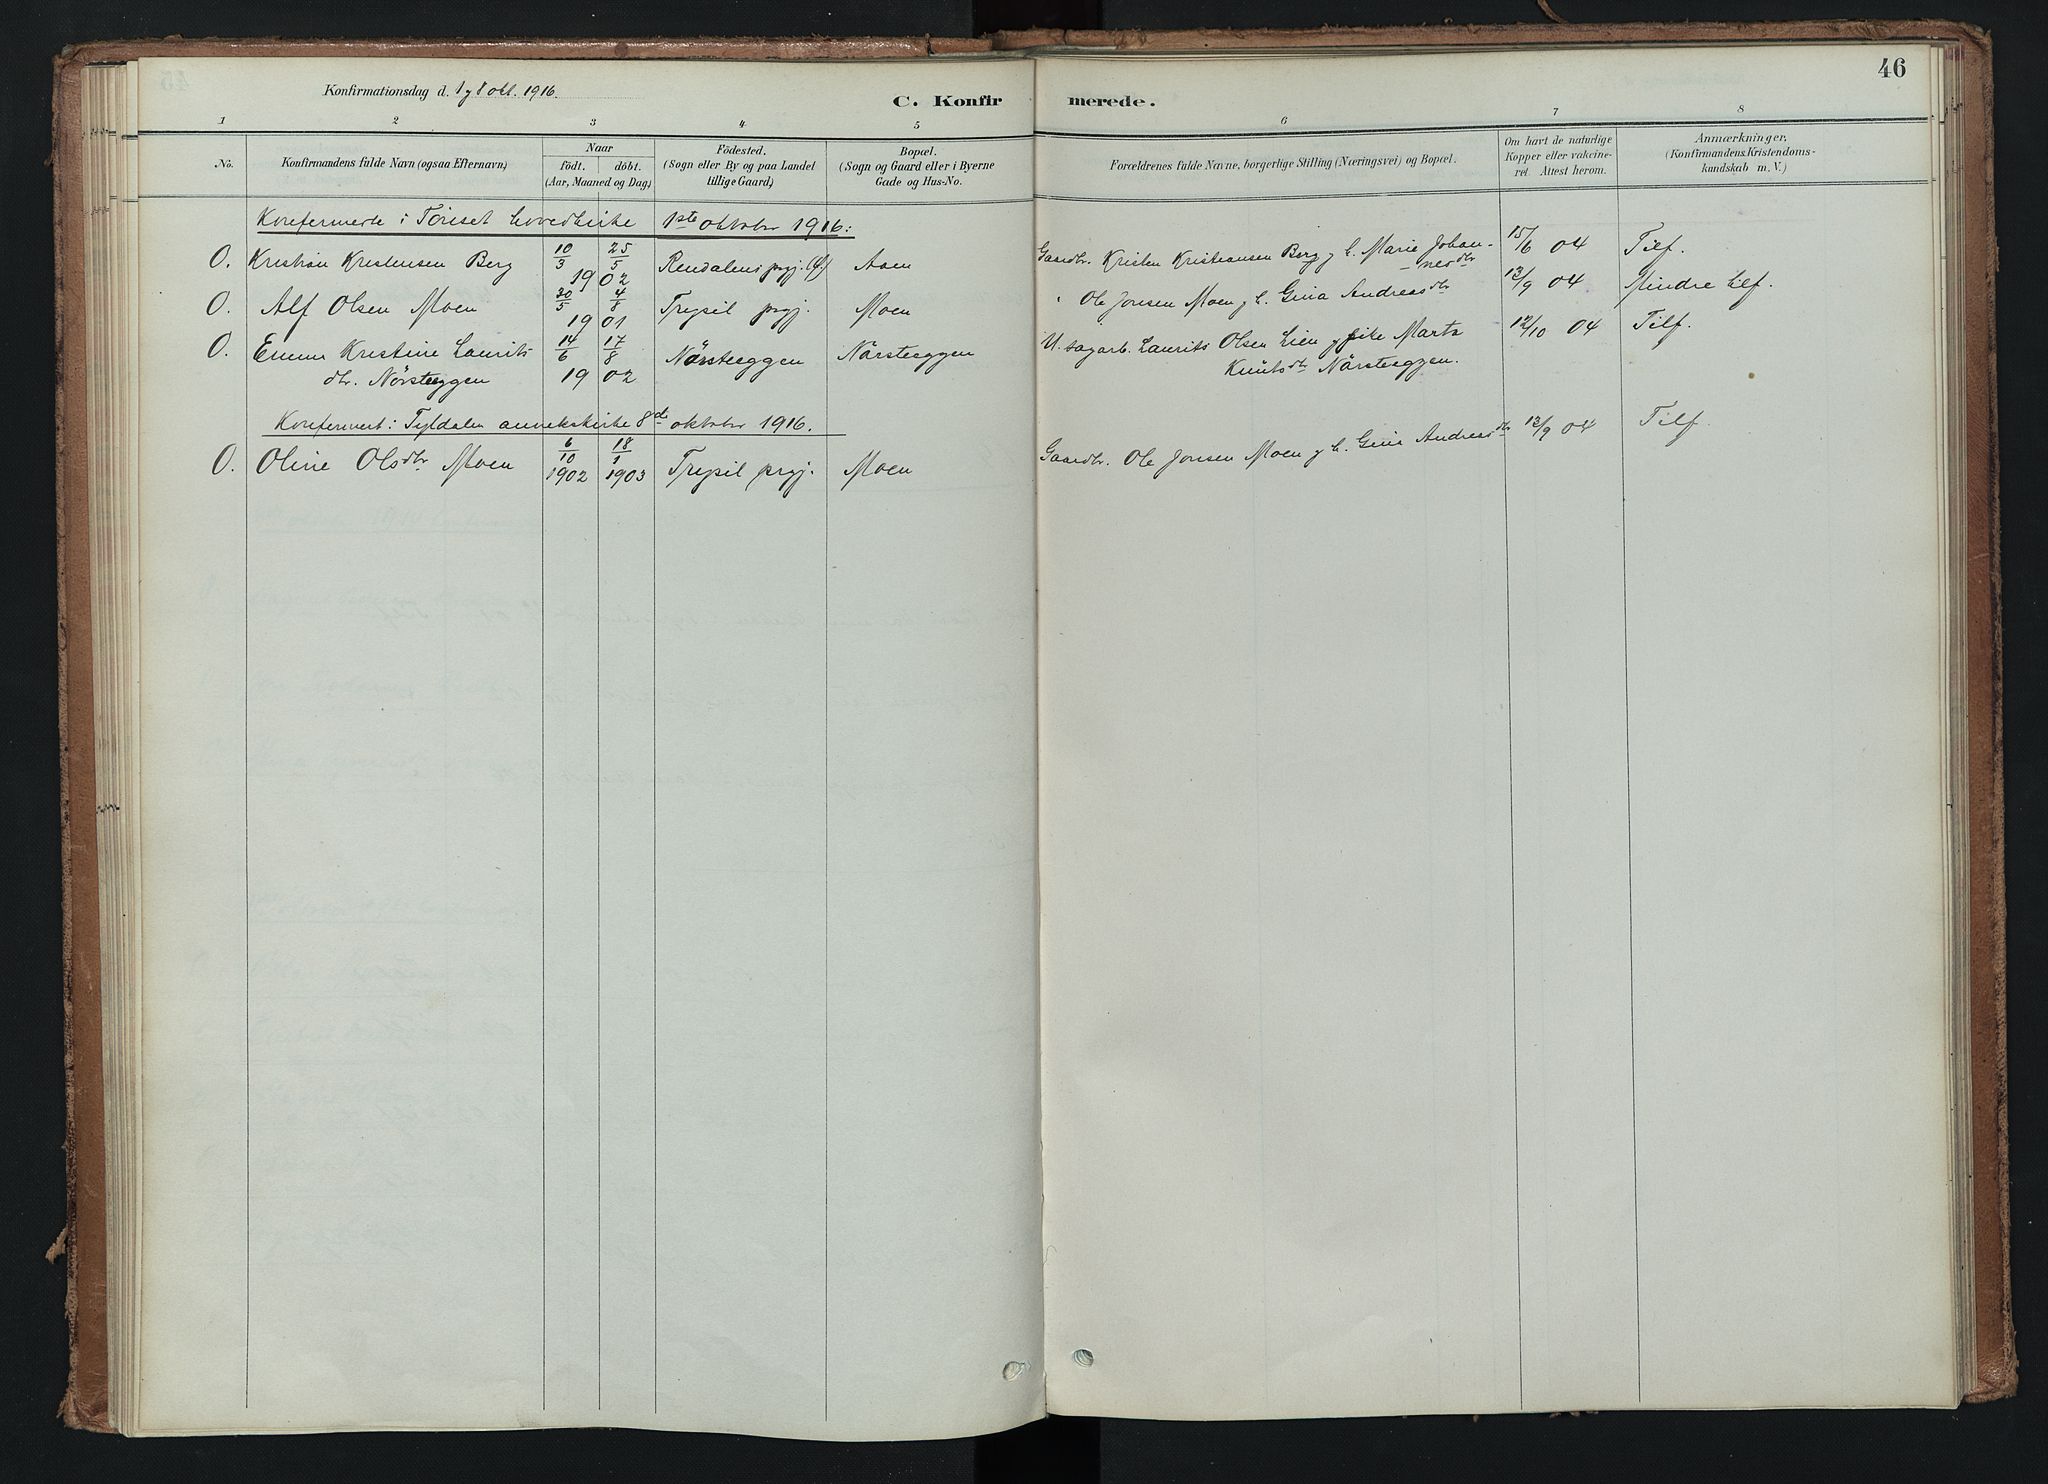 46
Konfirmationsdag d. 1 y 8 okt. 1916.
C. Konfir merede.
1 2 3 4 5 6 7 8
No.
Konfirmandens fulde Navn (ogsaa Efternavn)
Naar
födt. döbt.
(Aar, Maaned og Dag.)
Födested.
(Sogn eller By og paa Landet
tillige Gaard)
Bopæl.
(Sogn og Gaard eller i Byerne
Gade og Hus-No.
Forældrenes fulde Navne, borgerlige Stilling (Næringsvei) og Bopæl.
Om havt de naturlige
Kopper eller vakcine-
ret. Attest herom.
Anmærkninger.
(Konfirmandens Kristendoms-
kundskab m. V.)
Konfermerte i Tönset hovedkirke 1ste oktober 1916:
O. Kristian Kristensen Berg 10/3 25/5 1902 Rendalens prgj. (Ø.) Aaen Gaardbr. Kristen Kristiansen Berg y h. Marie Johan- 15/6 04 Tilf.
nesdtr
O. Alf Olsen Moen 30/5 4/8 1901 Trysil prgj. Moen " Ole Jonsen Moen y h. Gina Andreasdtr 12/9 04 Mindre tilf.
O. Emma Kristine Laurits 14/6 17/8 Nörsteeggen Nörsteeggen U. sagarb. Laurits Olsen Lien y pike Marta 12/10 04 Tilf.
dtr. Nörsteeggen 1902 Knutsdtr Nörsteeggen.
Konfermert i Tyldalen annekskirke 8de oktober 1916.
O. Oline Olsdtr Moen 6/10 1902 18/1 1903 Trysil prgj. Moen Gaardbr. Ole Jonsen Moen y h. Gina Andreasdtr 12/9 04 Tilf.